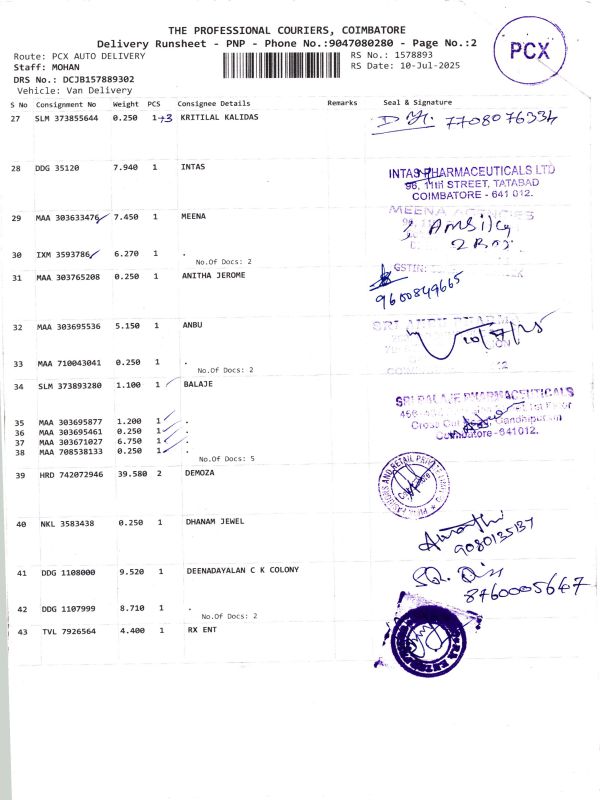 THE PROFESSIONAL COURIERS, COIMBATORE
Delivery Runsheet - PNP - Phone No.:9047080280 - Page No.:2
PCX
Route: PCX AUTO DELIVERY RS No.: 1578893
Staff: MOHAN RS Date: 10-Jul-2025
DRS No.: DCJB157889302
Vehicle: Van Delivery
S No Consignment No Weight PCS Consignee Details Remarks Seal & Signature
27 SLM 373855644 0.250 1 KRITILAL KALIDAS 7708076334
28 DDG 35120 7.940 1 INTAS
INTAS PHARMACEUTICALS LTD
96, 11th STREET, TATABAD
COIMBATORE - 641 012.
29 MAA 303633476 7.450 1 MEENA
MEENA AGENCIES
30 IXM 3593786 6.270 1 .
No.Of Docs: 2
GSTIN:
31 MAA 303765208 0.250 1 ANITHA JEROME
9600849665
32 MAA 303695536 5.150 1 ANBU
10/7/25
33 MAA 710043041 0.250 1 .
No.Of Docs: 2
34 SLM 373893280 1.100 1 BALAJE
SRI BALAJE PHARMACEUTICALS
Cross Cut Road, Gandhipuram
Coimbatore - 641012.
35 MAA 303695877 1.200 1 .
36 MAA 303695461 0.250 1 .
37 MAA 303671027 6.750 1 .
38 MAA 708538133 0.250 1 .
No.Of Docs: 5
39 HRD 742072946 39.580 2 DEMOZA
40 NKL 3583438 0.250 1 DHANAM JEWEL
9080135137
41 DDG 1108000 9.520 1 DEENADAYALAN C K COLONY
8760005647
42 DDG 1107999 8.710 1 .
No.Of Docs: 2
43 TVL 7926564 4.400 1 RX ENT